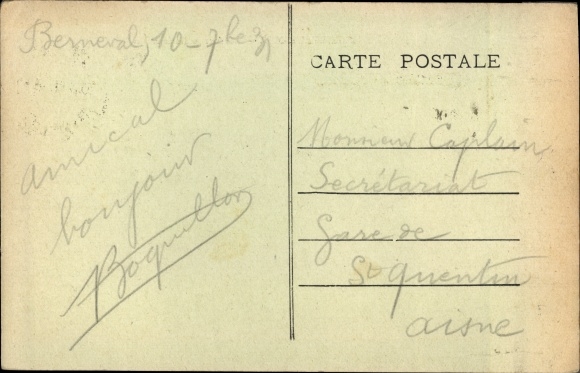 Berneval, 10 - 7bre 31
amical
bonjour
Boquillon
CARTE POSTALE
Monsieur Caplain
Secrétariat
Gare de
St Quentin
aisne